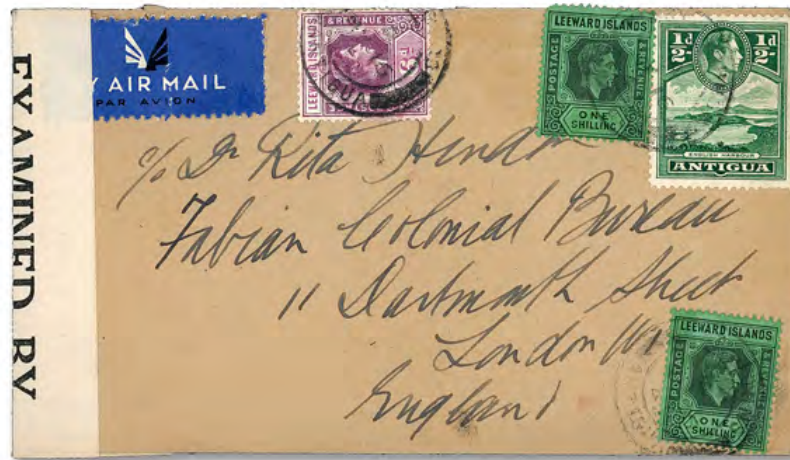 EXAMINED BY
Y AIR MAIL
PAR AVION
LEEWARD ISLANDS
& REVENUE
6d
LEEWARD ISLANDS
POSTAGE
& REVENUE
ONE
SHILLING
1/2d 1/2d
ENGLISH HARBOUR
ANTIGUA
c/o Dr Rita Hinden
Fabian Colonial Bureau
11 Dartmouth Street
London W1
England
LEEWARD ISLANDS
POSTAGE
& REVENUE
ONE
SHILLING